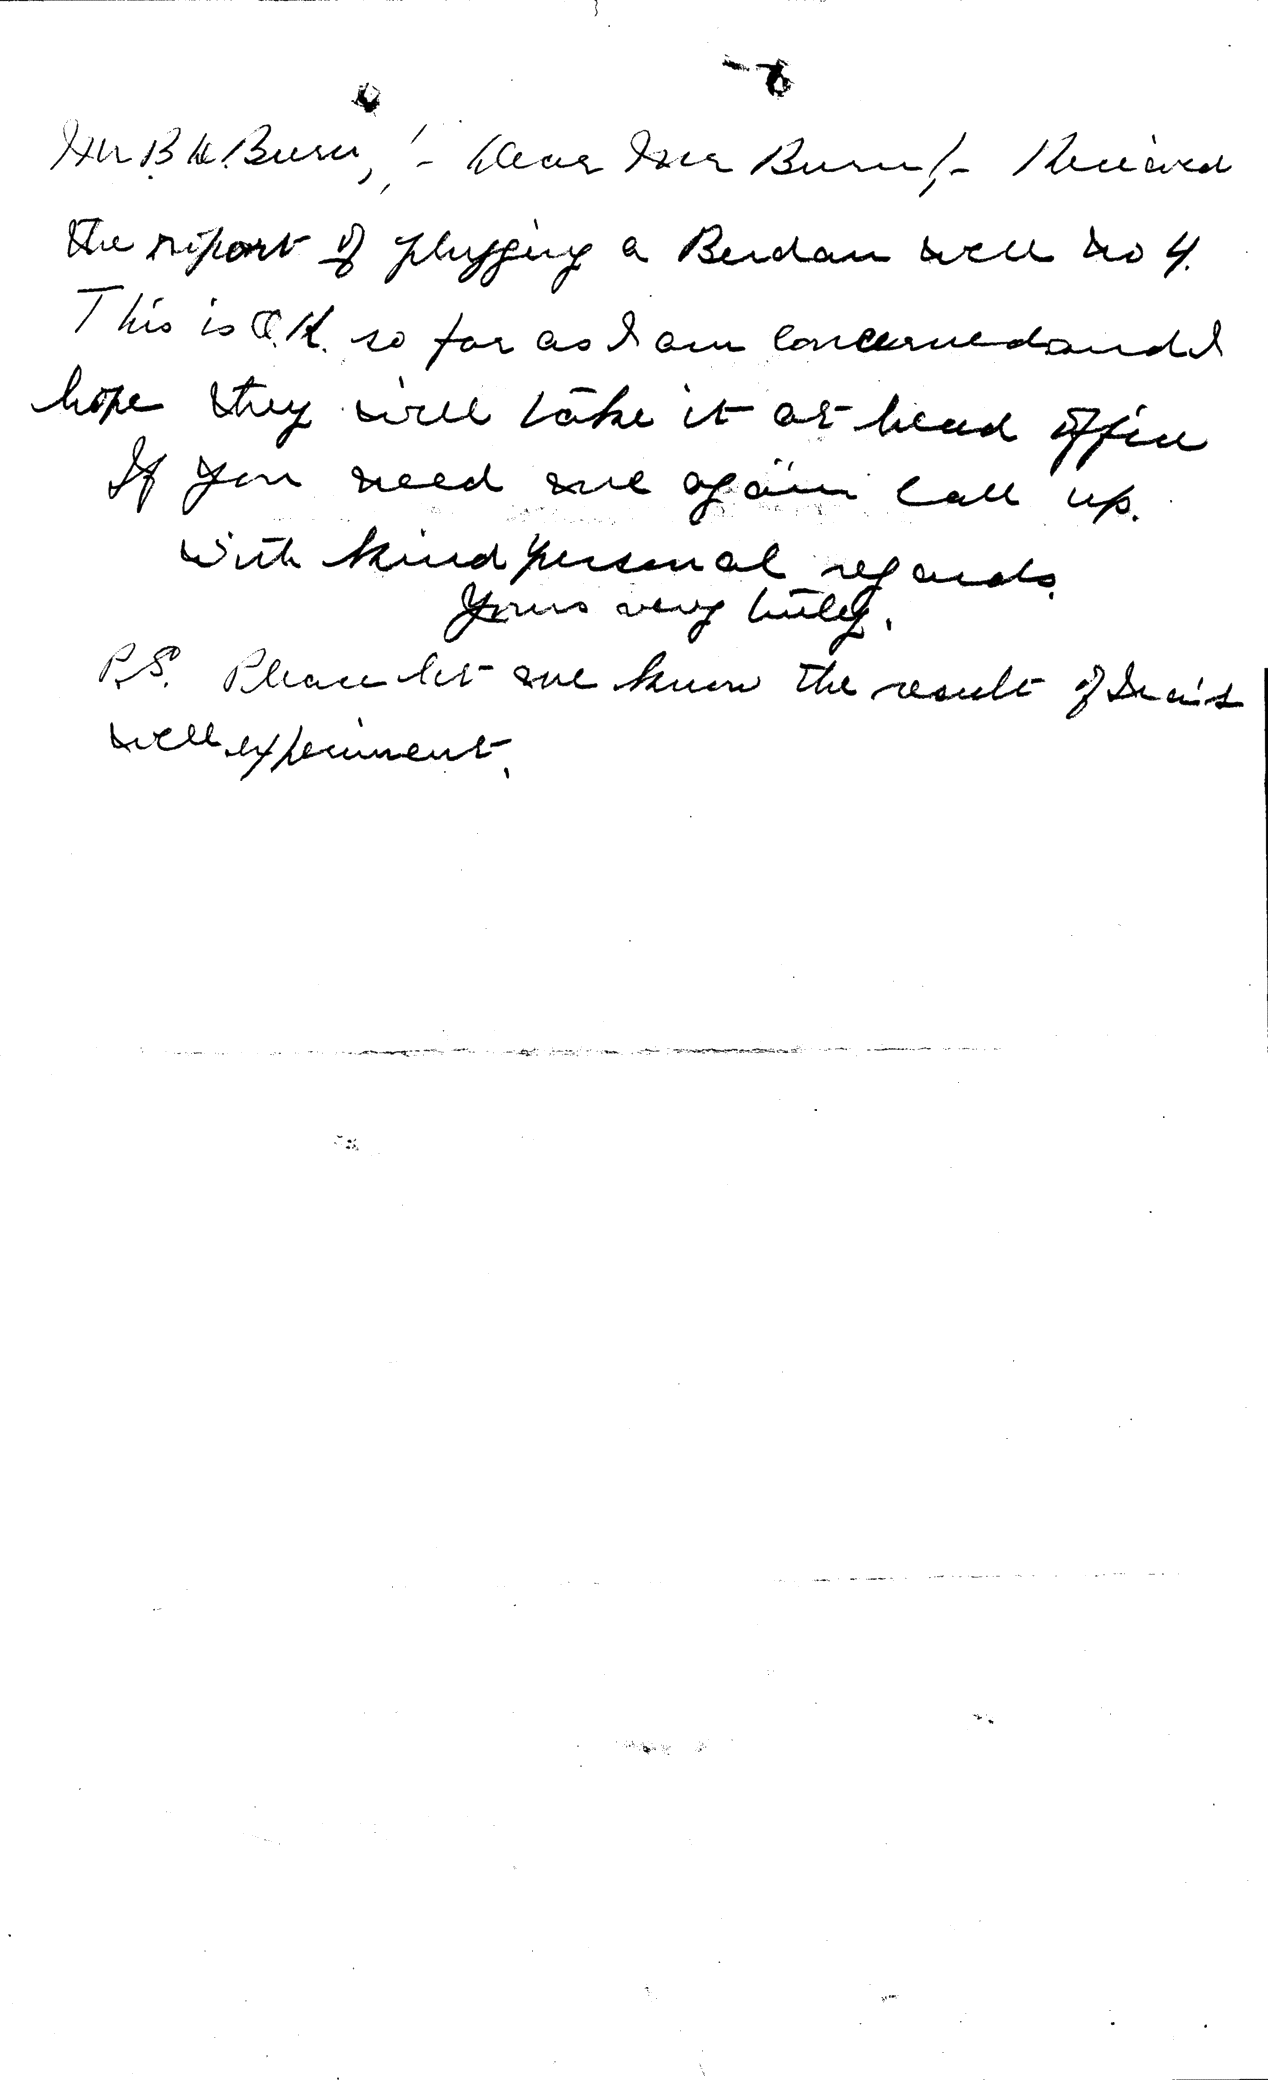 Mr B. H. Burn, !- Dear Mr Burn!- Recieved
the report of plugging a Berdan well no 4.
This is O.K. so far as I am concerned and I
hope they will take it at head office
If you need me again call up.
With kind personal regards.
Yours very truly.
P.S. Please let me know the result of
well experiment.